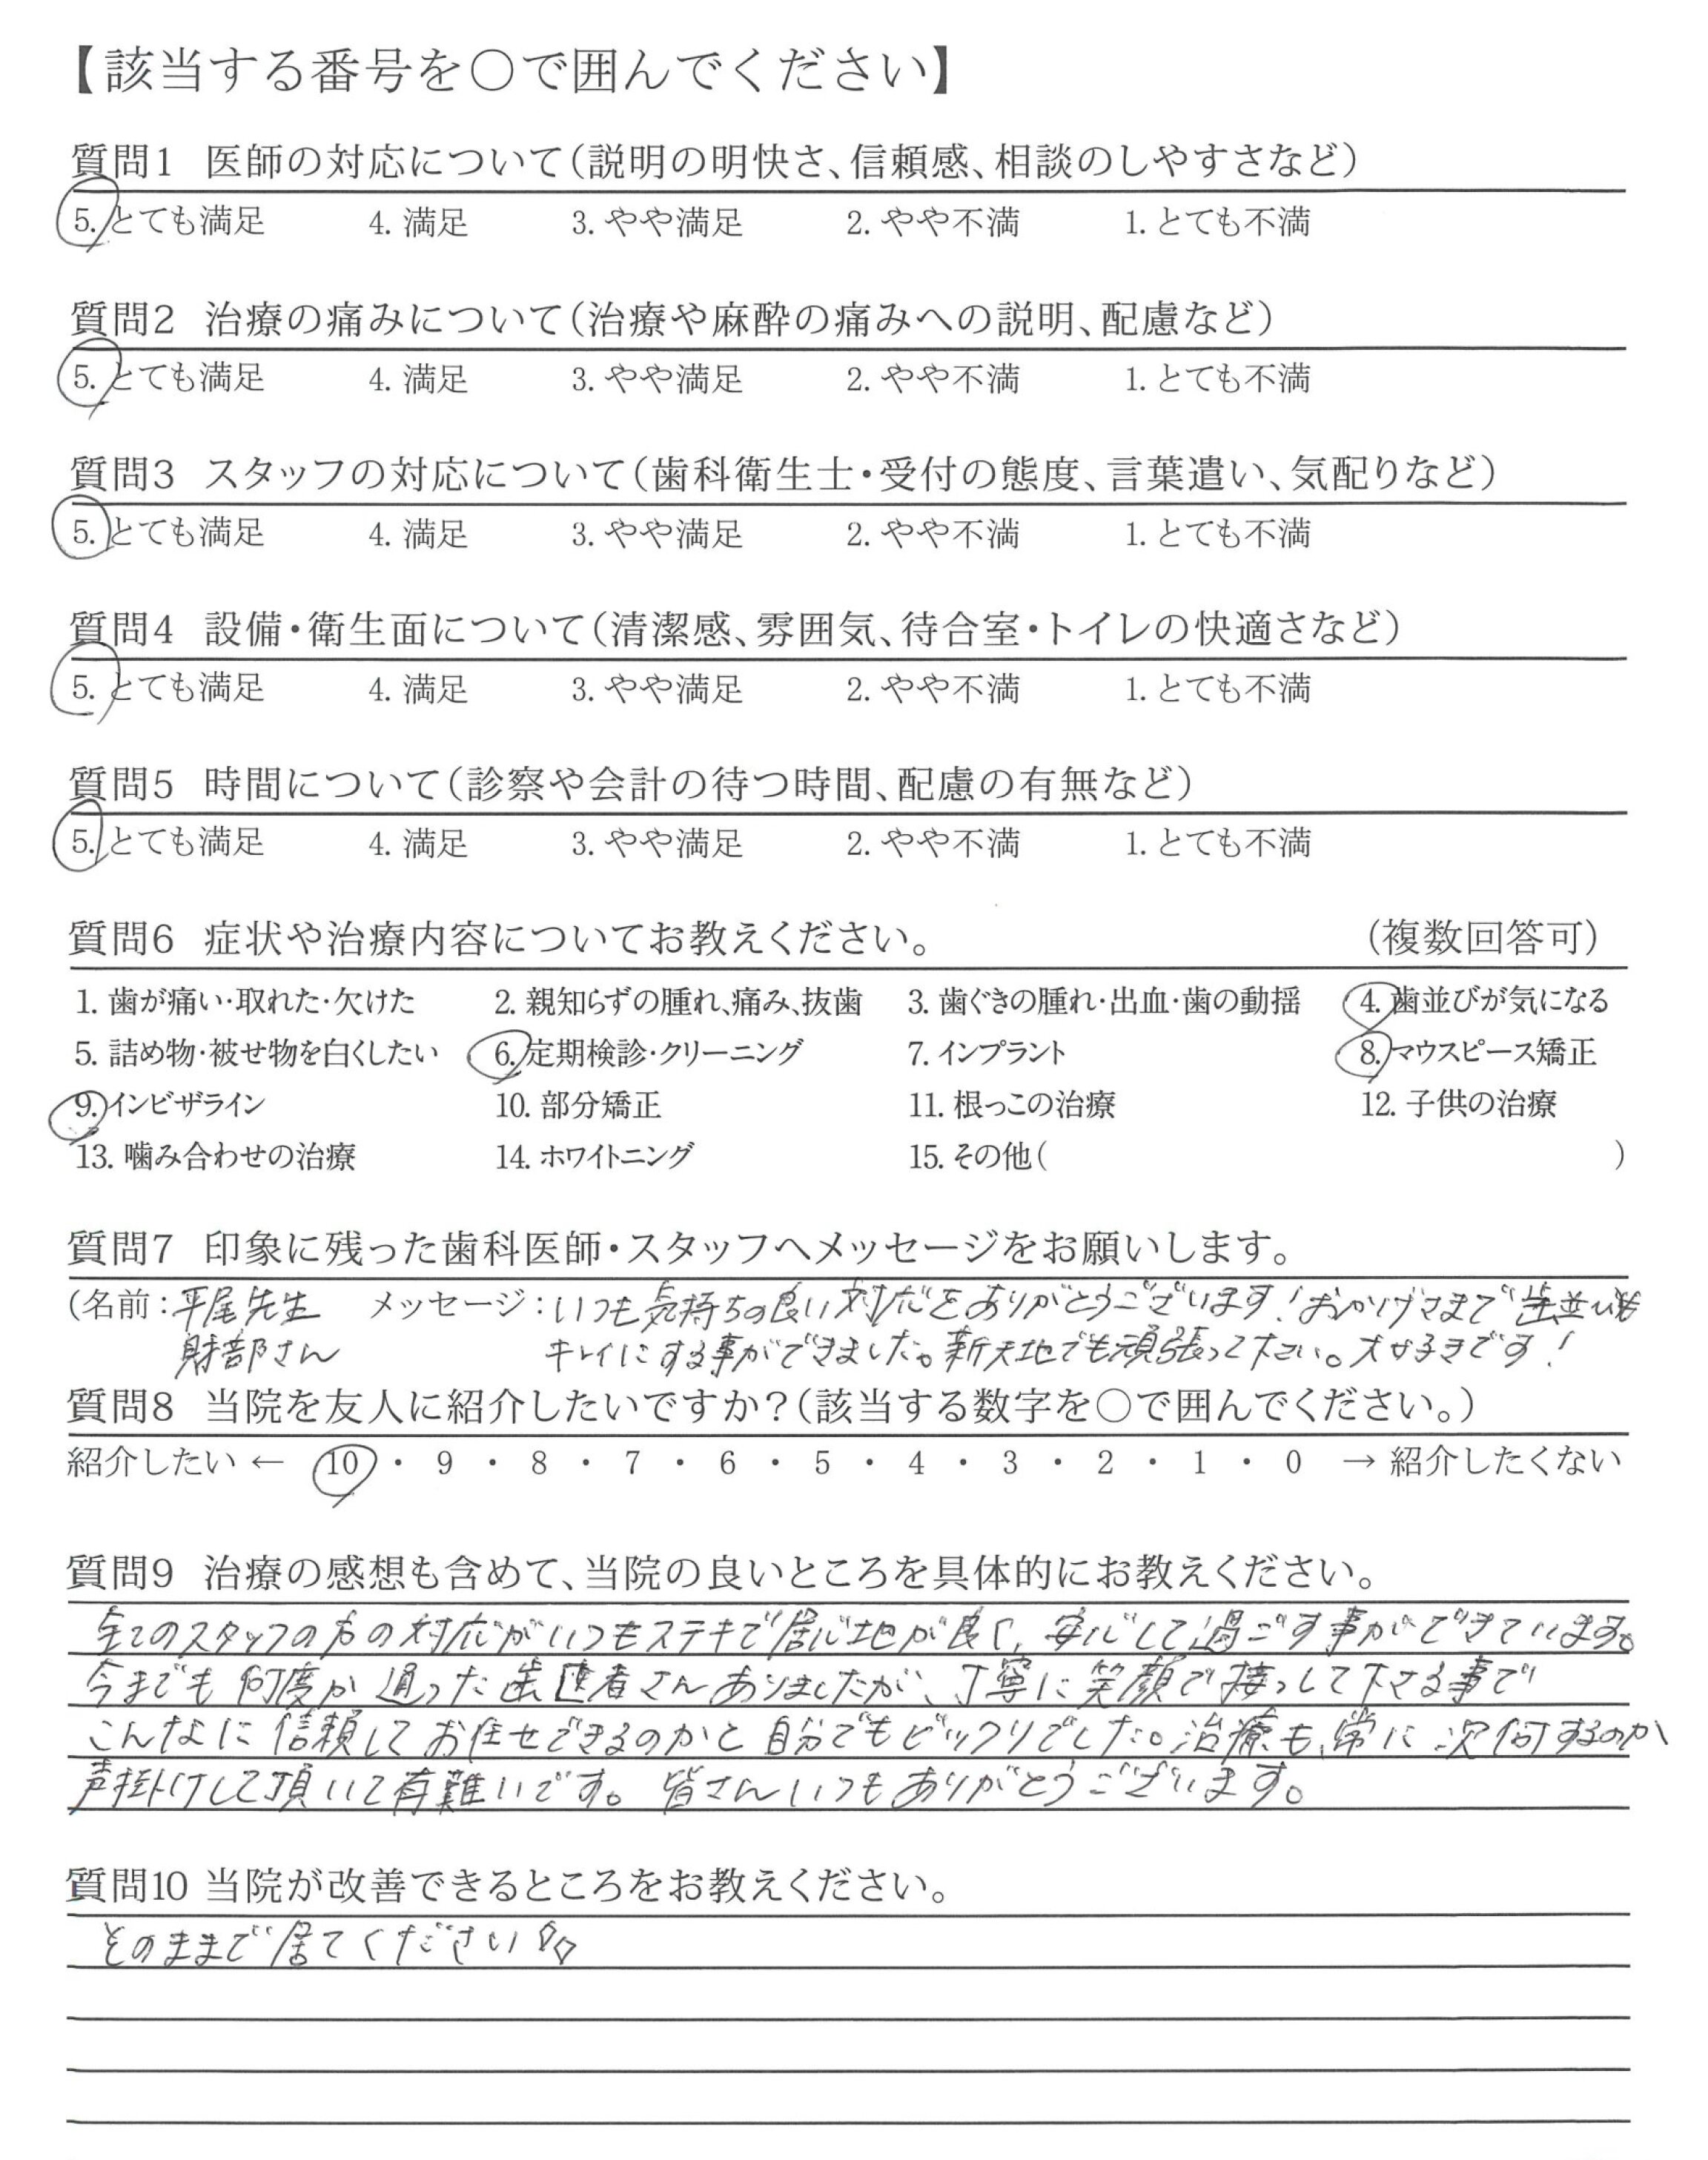 【該当する番号を〇で囲んでください】
質問1 医師の対応について(説明の明快さ、信頼感、相談のしやすさなど)
5. とても満足 4. 満足 3. やや満足 2. やや不満 1. とても不満
質問2 治療の痛みについて(治療や麻酔の痛みへの説明、配慮など)
5. とても満足 4. 満足 3. やや満足 2. やや不満 1. とても不満
質問3 スタッフの対応について(歯科衛生士・受付の態度、言葉遣い、気配りなど)
5. とても満足 4. 満足 3. やや満足 2. やや不満 1. とても不満
質問4 設備・衛生面について(清潔感、雰囲気、待合室・トイレの快適さなど)
5. とても満足 4. 満足 3. やや満足 2. やや不満 1. とても不満
質問5 時間について(診察や会計の待つ時間、配慮の有無など)
5. とても満足 4. 満足 3. やや満足 2. やや不満 1. とても不満
質問6 症状や治療内容についてお教えください。 (複数回答可)
1. 歯が痛い・取れた・欠けた 2. 親知らずの腫れ、痛み、抜歯 3. 歯ぐきの腫れ・出血・歯の動揺 4. 歯並びが気になる
5. 詰め物・被せ物を白くしたい 6. 定期検診・クリーニング 7. インプラント 8. マウスピース矯正
9. インビザライン 10. 部分矯正 11. 根っこの治療 12. 子供の治療
13. 噛み合わせの治療 14. ホワイトニング 15. その他( )
質問7 印象に残った歯科医師・スタッフへメッセージをお願いします。
(名前:平尾先生 メッセージ:いつも気持ちの良い対応をありがとうございます!おかげさまで歯並びも
財部さん キレイにする事ができました。新天地でも頑張って下さい。大好きです!
質問8 当院を友人に紹介したいですか?(該当する数字を〇で囲んでください。)
紹介したい ← 10 ・ 9 ・ 8 ・ 7 ・ 6 ・ 5 ・ 4 ・ 3 ・ 2 ・ 1 ・ 0 → 紹介したくない
質問9 治療の感想も含めて、当院の良いところを具体的にお教えください。
全てのスタッフの方の対応がいつもステキで居心地が良く、安心して過ごす事ができています。
今までも何度か通った歯医者さんありましたが、丁寧に笑顔で接っして下さる事で
こんなに信頼してお任せできるのかと自分でもビックリでした。治療も、常に次何するのか
声掛けして頂いて有難いです。皆さんいつもありがとうございます。
質問10 当院が改善できるところをお教えください。
そのままで居てください